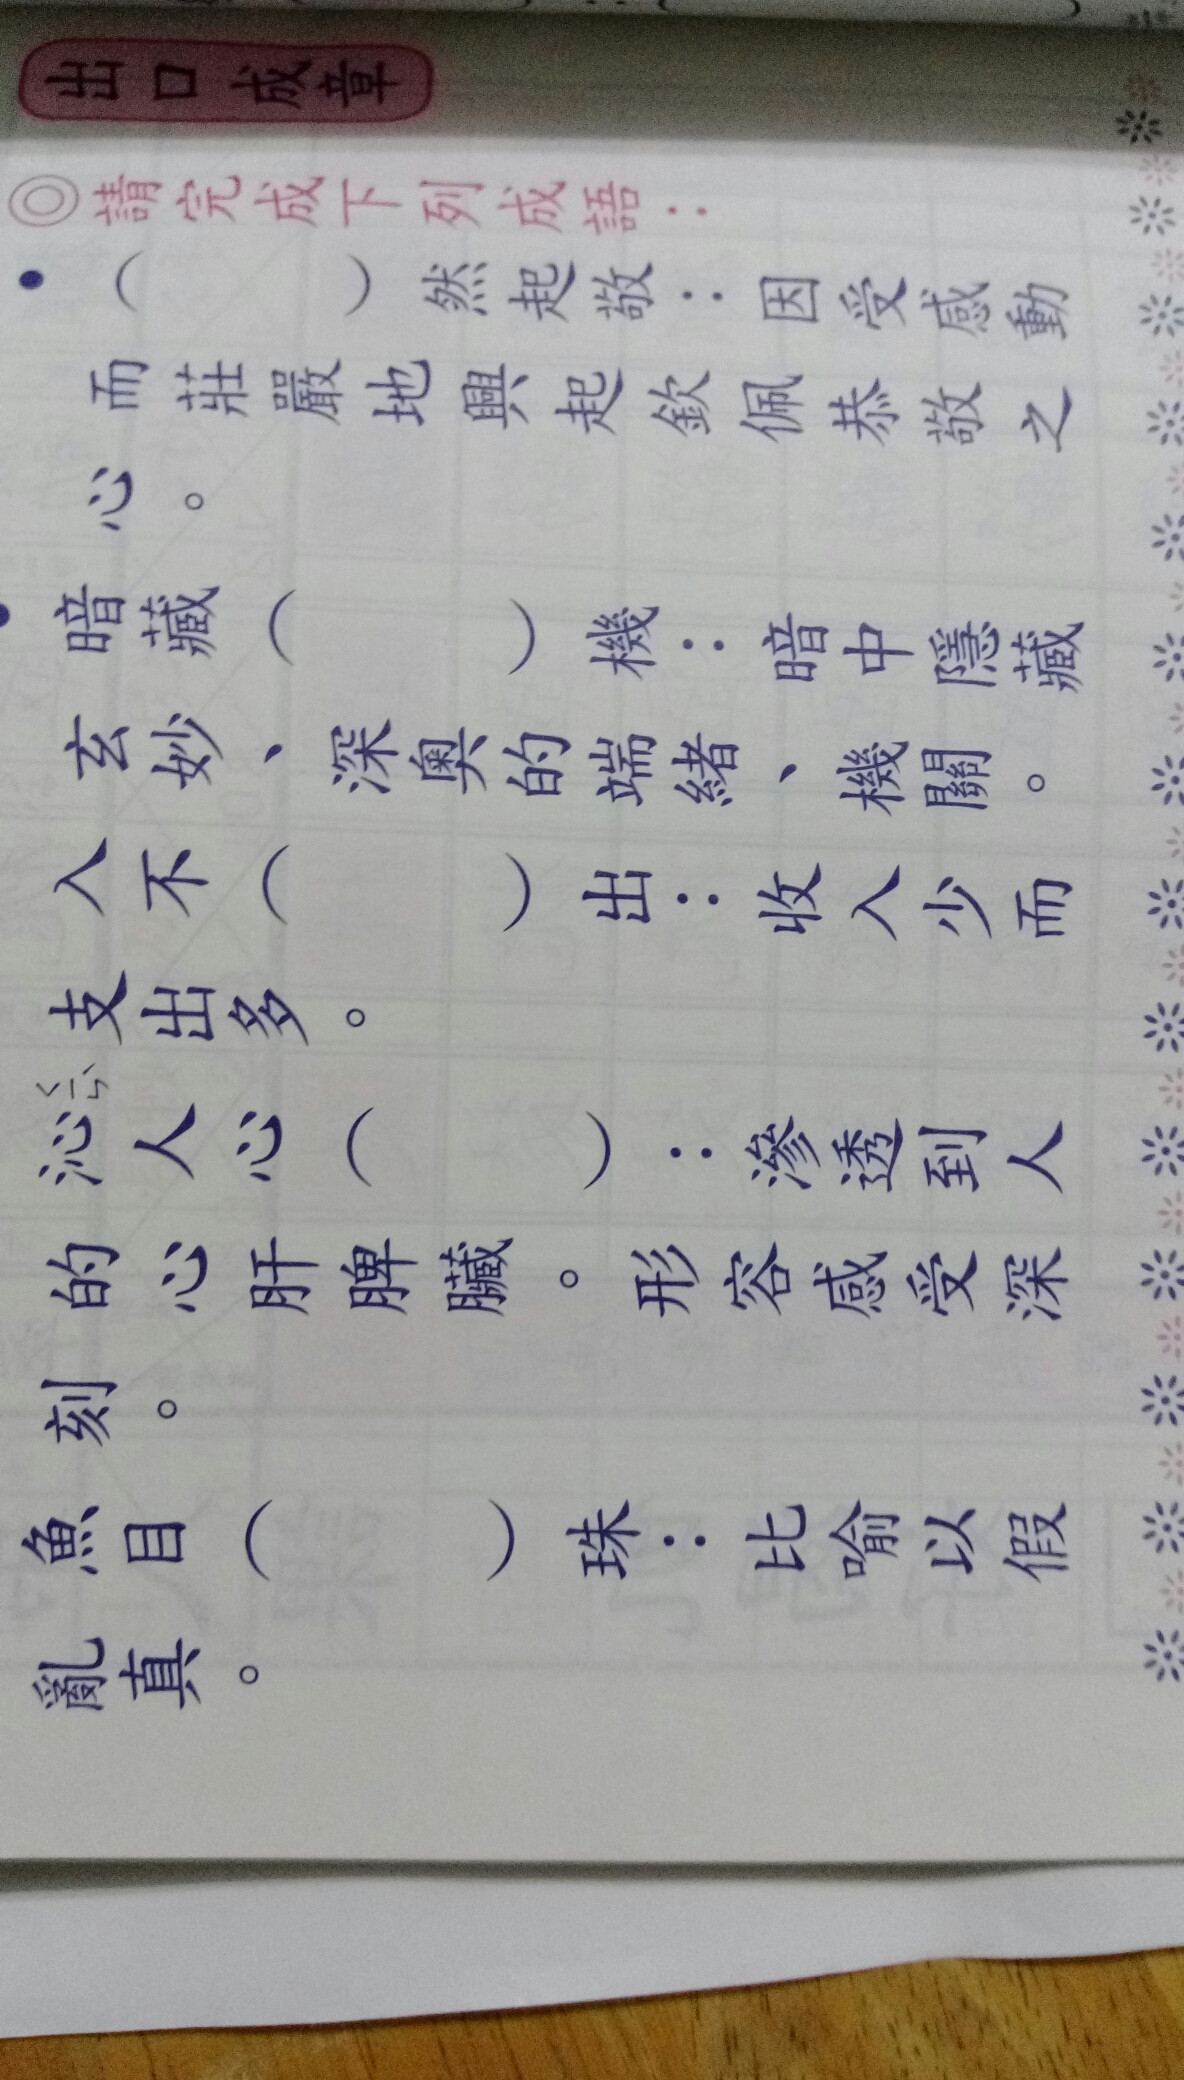 出口成章
◎請完成下列成語：
（　　）然起敬：因受感動
而莊嚴地興起欽佩恭敬之
心。
暗藏（　　）機：暗中隱藏
玄妙、深奧的端緒、機關。
入不（　　）出：收入少而
支出多。
沁ㄑㄧㄣˋ人心（　　）：滲透到人
的心肝脾臟。形容感受深
刻。
魚目（　　）珠：比喻以假
亂真。